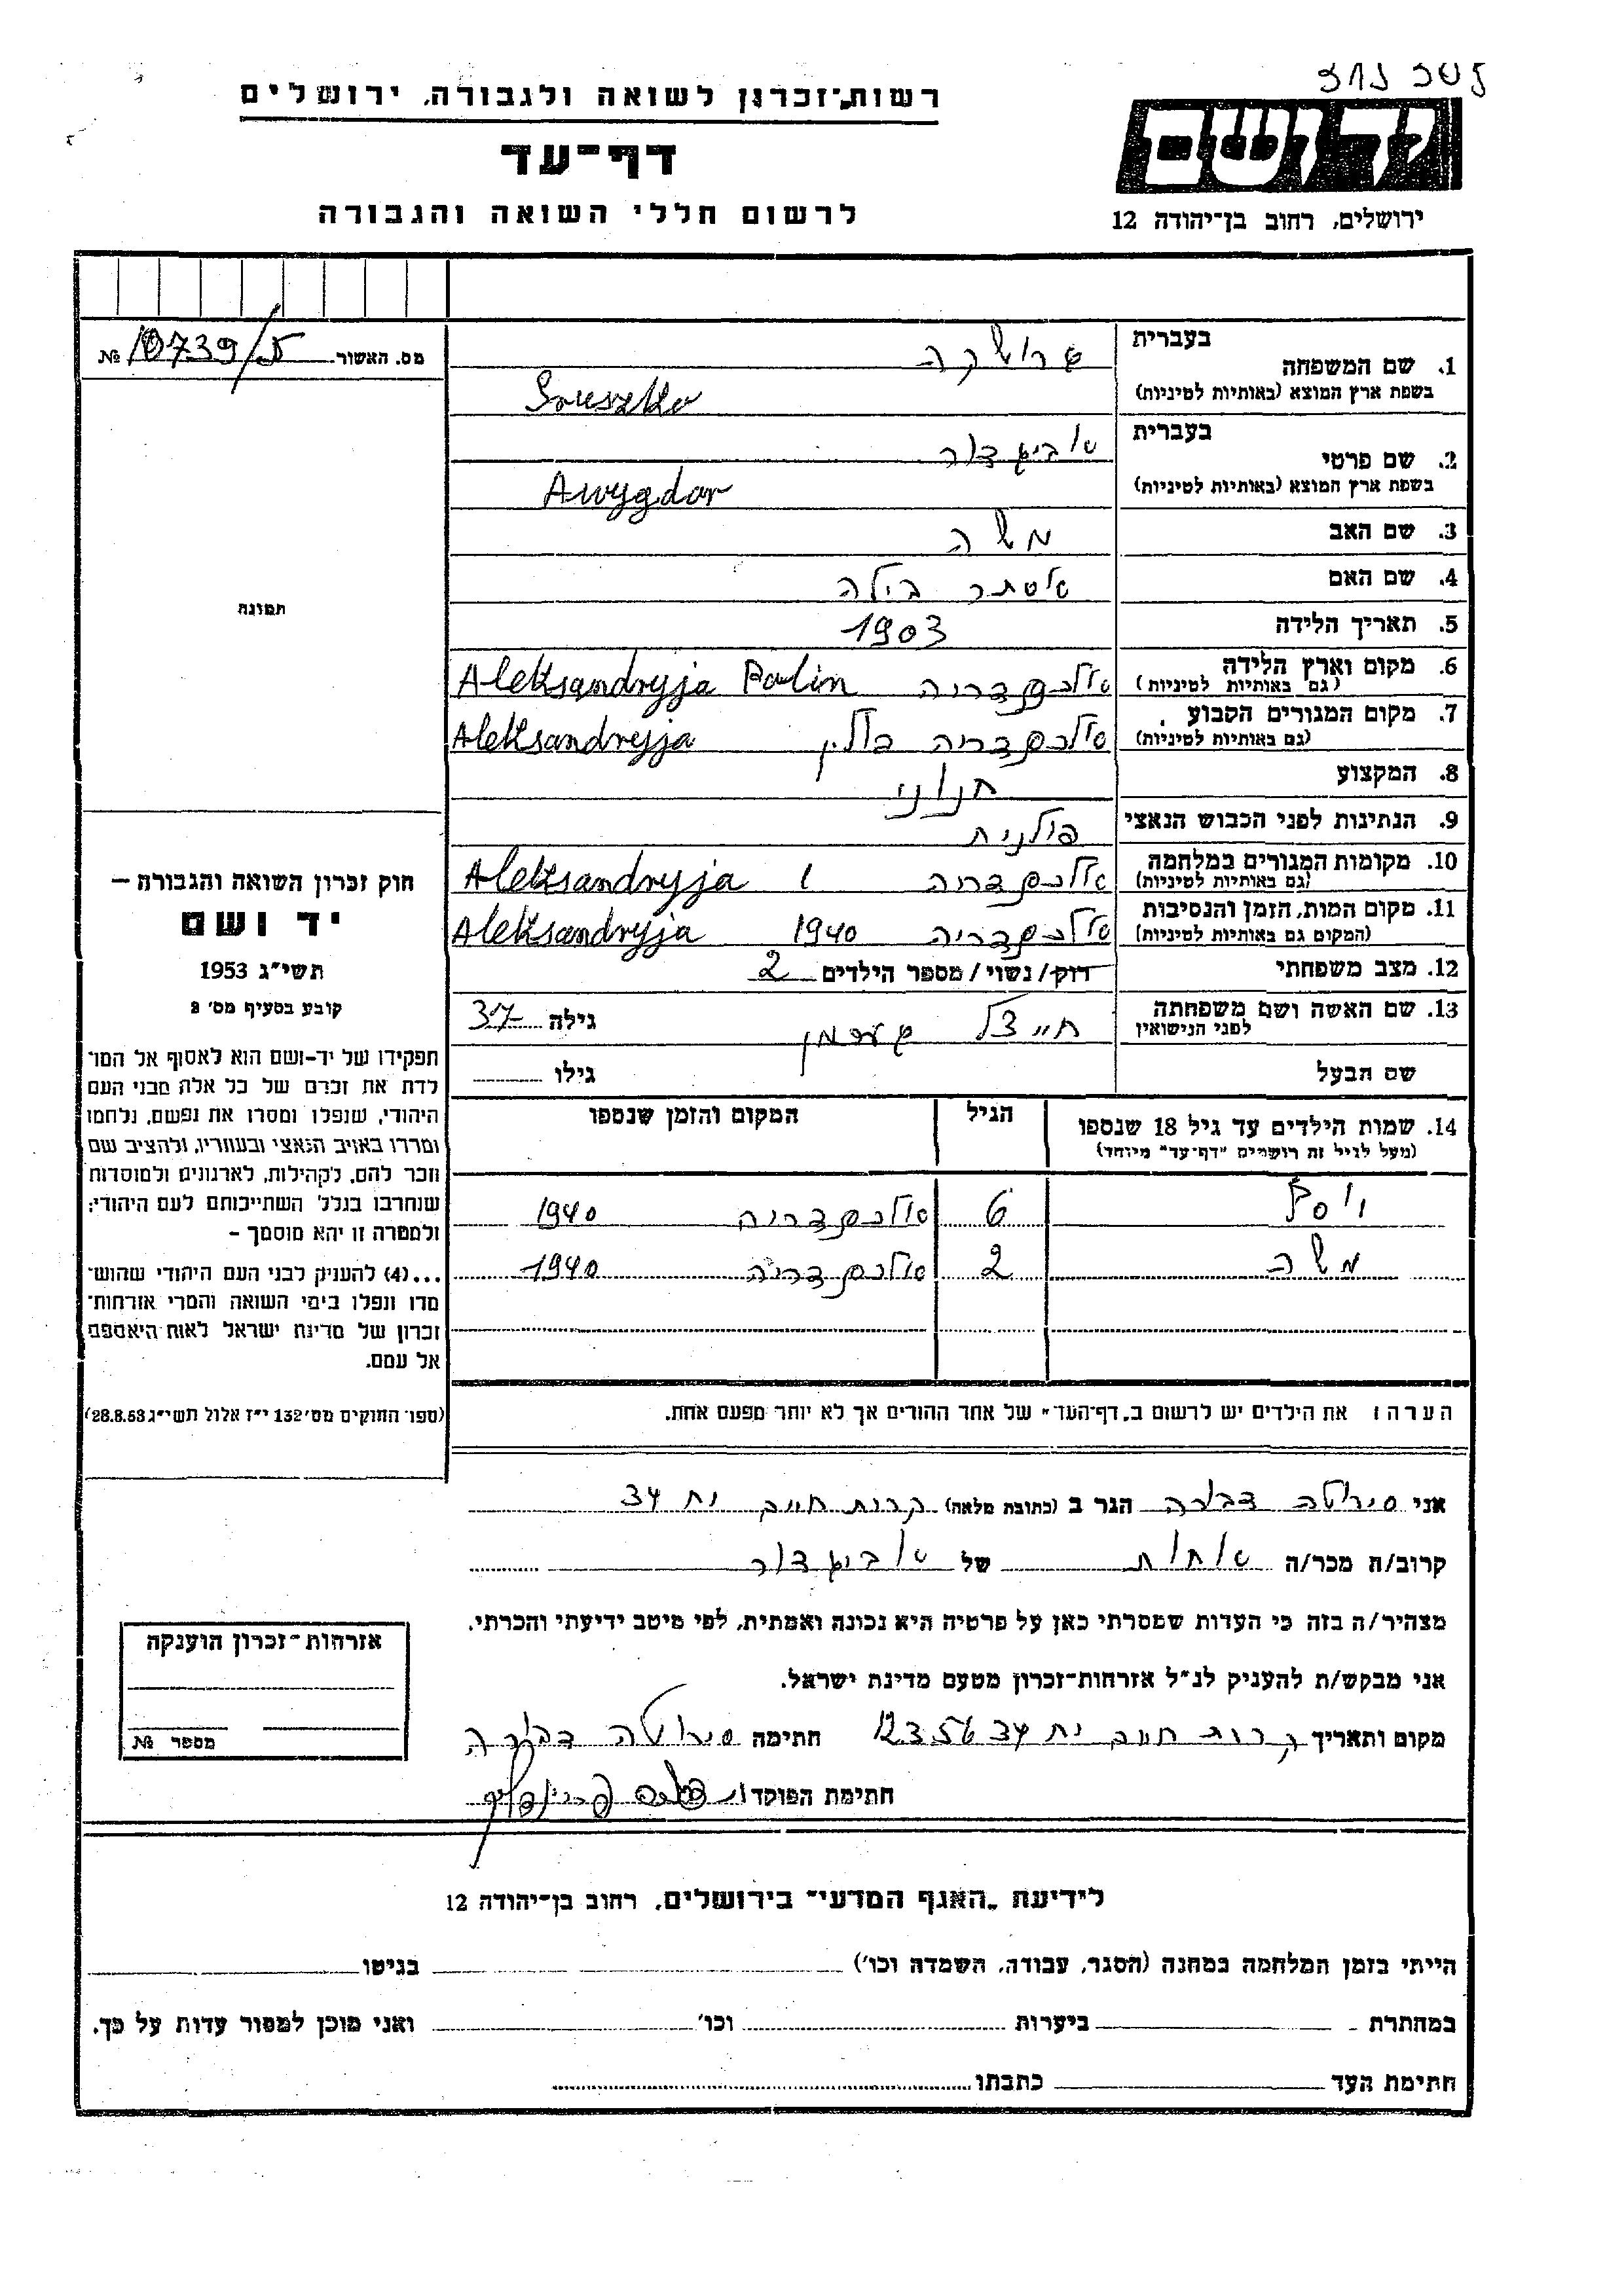 רשות-זכרון לשואה ולגבורה, ירושלים
יד ושם
דף-עד
לרשום חללי השואה והגבורה
ירושלים, רחוב בן-יהודה 12
מס. האשור № 10739/
1. שם המשפחה
בעברית
בשפת ארץ המוצא (באותיות לטיניות)
2. שם פרטי
בעברית אביגדור
בשפת ארץ המוצא (באותיות לטיניות) Awygdor
3. שם האב משה
4. שם האם אסתר ביילה
5. תאריך הלידה 1903
6. מקום וארץ הלידה אלכסנדריה Aleksandryja
(גם באותיות לטיניות)
7. מקום המגורים הקבוע אלכסנדריה Aleksandryja
(גם באותיות לטיניות)
8. המקצוע חנוני
9. הנתינות לפני הכבוש הנאצי פולנית
10. מקומות המגורים במלחמה אלכסנדריה Aleksandryja
(גם באותיות לטיניות)
11. מקום המות, הזמן והנסיבות אלכסנדריה 1940 Aleksandryja
(המקום גם באותיות לטיניות)
12. מצב משפחתי רוק/ נשוי/ מספר הילדים 2
13. שם האשה ושם משפחתה גילה 37
לפני הנישואין
שם הבעל גילו
14. שמות הילדים עד גיל 18 שנספו הגיל המקום והזמן שנספו
(מעל לגיל זה רושמים "דף-עד" מיוחד)
יוסף 6 אלכסנדריה 1940
משה 2 אלכסנדריה 1940
הערה: את הילדים יש לרשום ב„דף-העד" של אחד ההורים אך לא יותר מפעם אחת.
תמונה
חוק זכרון השואה והגבורה –
יד ושם
תשי"ג 1953
קובע בסעיף מס'
תפקידו של יד-ושם הוא לאסוף אל המו־
לדת את זכרם של כל אלה מבני העם
היהודי, שנפלו ומסרו את נפשם, נלחמו
ומרדו באויב הנאצי ובעוזריו, ולהציב שם
וזכר להם, לקהילות, לארגונים ולמוסדות
שנחרבו בגלל השתייכותם לעם היהודי;
ולמטרה זו יהא מוסמך –
...(4) להעניק לבני העם היהודי שהוש־
מדו ונפלו בימי השואה והמרי אזרחות־
זכרון של מדינת ישראל לאות היאספם
אל עמם.
(ספר החוקים מס' 132 י"ז אלול תשי"ג 28.8.53)
אני סירוטה דבורה הגר ב (כתובת מלאה) קרית חיים 34
קרוב/ה מכר/ה אחות של אביגדור
מצהיר/ה בזה כי העדות שמסרתי כאן על פרטיה היא נכונה ואמתית, לפי מיטב ידיעתי והכרתי.
אני מבקש/ת להעניק לנ"ל אזרחות-זכרון מטעם מדינת ישראל.
מקום ותאריך קרית חיים 34 12.3.56 חתימה סירוטה דבורה
חתימת הפוקד
אזרחות-זכרון הוענקה
מספר №
לידיעת „האגף המדעי" בירושלים, רחוב בן-יהודה 12
הייתי בזמן המלחמה במחנה (הסגר, עבודה, השמדה וכו') בגיטו
במחתרת ביערות וכו' ואני מוכן למסור עדות על כך.
חתימת העד כתבתו